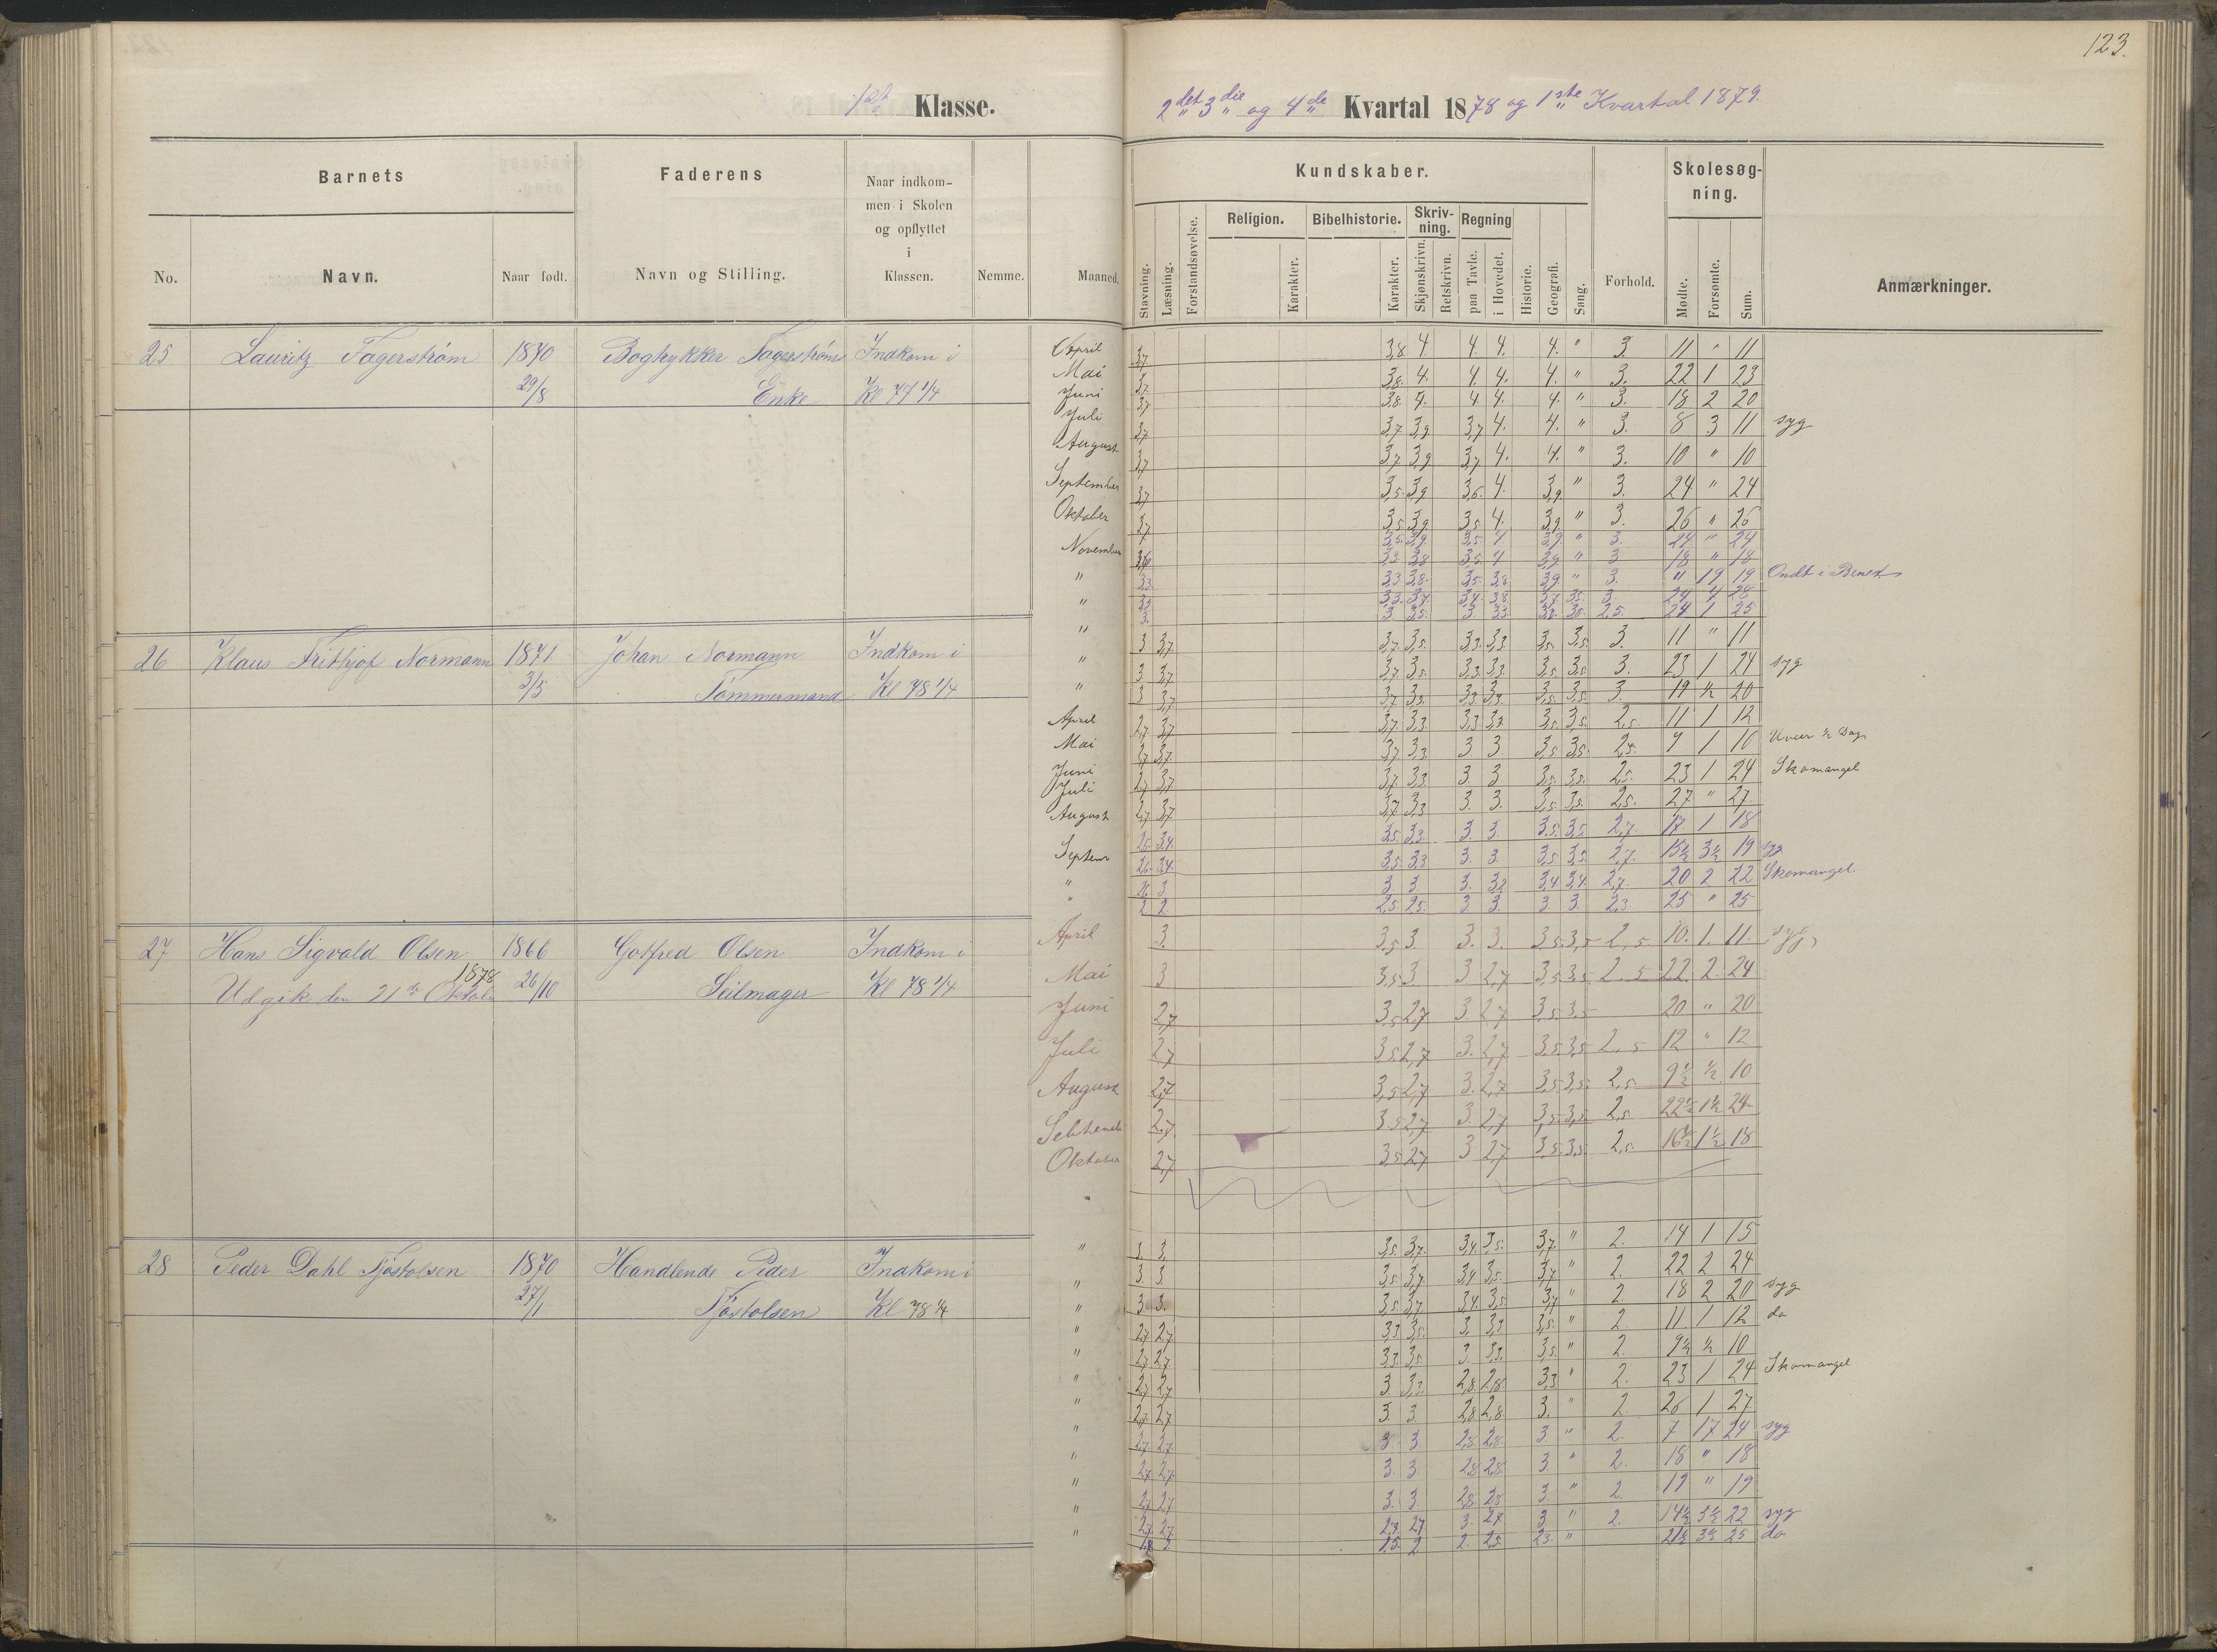 123.
1ste Klasse.
2det 3die og 4de Kvartal 1878 og 1ste Kvartal 1879.
Barnets
Faderens
Naar indkom-
men i Skolen
og opflyttet
i
Klassen.
No.
Navn.
Naar født.
Navn og Stilling.
Nemme.
Maaned.
Kundskaber.
Stavning.
Læsning.
Forstandsøvelse.
Religion.
Karakter.
Bibelhistorie.
Karakter.
Skriv-
ning.
Skjønskrivn.
Retskrivn.
Regning
paa Tavle.
i Hovedet.
Historie.
Geografi.
Sang.
Forhold.
Skolesøg-
ning.
Mødte.
Forsømte.
Sum.
Anmærkninger.
25 Lauritz Fagerstrøm 1870 Bogtrykker Fagerstrøms Indkom i
29/8 Enke Kl 77 1/4
April 3,7 3,8 4 4. 4. 4. " 3. 11 " 11
Mai 3,7 3,8. 4. 4. 4. 4. " 3. 22 1 23
Juni 3,7 3,8 4. 4. 4. 4. " 3. 18 2 20
Juli 3,7 3,7 3,9. 3,7 4. 4. " 3. 8 3 11 syg
August 3,7 3,7. 3,9 3,7 4. 4. " 3. 10 " 10
September 3,7 3,5. 3,9 3,6. 4. 3,9 " 3. 24 " 24
Oktober 3,7 3,5 3,9. 3,5. 4. 3,9. " 3. 26 " 26
November 3,5. 3,9. 3,5 4 3,9 " 3. 24 " 24
3,3 3,8 3,5 4 3,9 " 3 18 " 18
" 3,3 3,3 3,8. 3,5 3,8 3,9. " 3. " 19 19 Ondt i Benet
" 3. 24 4 28
3. 3 3,5. 3 3,3 2,5. 24 1 25
26 Klaus Frithjof Normann 1871 Johan Normann Indkom i
3/5 Tømmermand Kl 78 1/4
" 3 3,7 3,7. 3,5. 3,3. 3,3 3,5. 3,5. 3. 11 " 11
" 3 3,7 3,7 3,5. 3,3. 3,3. 3,5. 3,5. 3. 23 1 24 syg
" 3 3,7 3,7 3,5. 3,3 3,3. 3,5. 3,5. 3. 19 1/2 20
April 2,7. 3,7 3,7 3,3. 3,3. 3,3. 3,5. 3,5. 2,5. 11 1 12
Mai 2,7 3,7. 3,7 3,3 3. 3. 3,5 3,5. 2,5. 9 1 10 Uveir 1/2 Dag
Juni 2,7 3,7 3,7. 3,3 3 3 3,5. 3,5. 2,5. 23 1 24 Skomangel
Juli
August 2,7 3,7 3,7. 3,3 3. 3. 3,5. 3,5. 2,5. 27 " 27
2,6. 3,4. 3,5. 3,3. 3. 3. 3,5. 3,5. 2,7 17 1 18
Septem 2,6. 3,4. 3,5. 3,3 3. 3. 3,5. 3,5. 2,7. 15½ 3½ 19 syg
" 2,6 3. 3 3. 3. 3,2 3,4 3,4 2,7. 20 2 22 Skomangel.
" 2 2. 2,5. 2,5. 3 3. 3. 3. 2,3 25 " 25
27 Hans Sigvald Olsen 1866 Gotfred Olsen Indkom i
1878
Udgik den 21de Oktober 26/10 Seilmager Kl 78 1/4
April 3. 3,5 3 3. 3. 3,5. 3,5 2,5 10. 1. 11. syg
Mai 3 3,5 3 3 2,7 3,5. 3,5. 2,5 22 2 24
Juni 2,7 3,5 2,7 3 2,7 3,5. 3,5 20 " 20
Juli 2,7 3,5. 2,7 3. 2,7 3,5. 3,5 2,5 12 " 12
August 2,7 3,5 2,7 3. 2,7 3,5. 3,5. 2,5. 9½ ½ 10
2,7 3.5 2,7 3. 2,7 3,5. 3,5. 2,5. 22½ 1½ 24
Oktober 2,7 3,5. 2,7 3 2,7 3,5. 3,5. 2,5. 16½ 1½ 18
"
28 Peder Dahl Tjøstolsen 1870 Handlende Peder Indkom i
27/1 Tjøstolsen Kl 78 1/4
" 3. 3. 3,5. 3,7. 3,4. 3,5. 3,7. " 2. 14 1 15
" 3. 3. 3,5. 3,7 3,4 3,5. 3,7 " 2. 22 2 24
" 3. 3. 3,5. 3,7 3,4. 3,5 3,7 " 2. 18 2 20 syg
" 2,7 2,7. 3,3 3,5. 3. 3,3 3,5. " 2 11 1 12 do
" 2,7 2,7. 3,3. 3,5 3. 3,3. 3,5. " 2. 9½ ½ 10
" 2,7 2,7 3. 3,3. 2,8. 2,8 3,3 " 2. 23 1 24 Skomangel
" 2,7. 2,7 3. 3. 2,8. 2,8. 3. " 2. 26 1 27
" 2,7. 2,7. 3 3. 2,8. 2,8. 3 " 2. 7 17 24 syg
" 2,7 2,7. 3. 3. 2,8 2,8. 3. " 2. 18 " 18
" 2,7 2,7 3. 3. 3 " 2. 19 " 19
" 2,7. 2,7. 2,7. 2,7 3. 2,7 3 " 2. 22 syg
" 2,5. 2 2. 2,5. 2,3. " 21½ 3½ 25 do